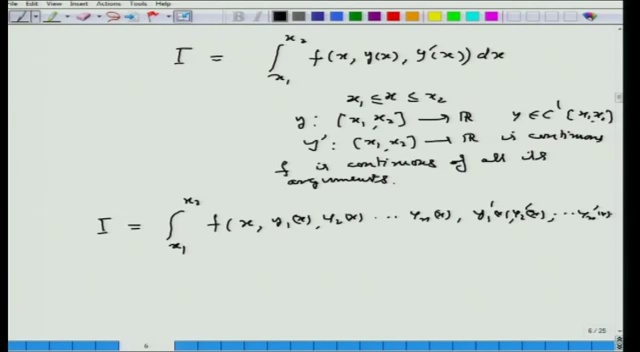 File Edit View Insert Actions Tools Help
I = ∫_{x₁}^{x₂} f(x, y(x), y'(x)) dx
x₁ ≤ x ≤ x₂
y : [x₁, x₂] → ℝ y ∈ C'[x₁, x₂]
y' : [x₁, x₂] → ℝ is continuous
f is continuous of all its
arguments.
I = ∫_{x₁}^{x₂} f(x, y₁(x), y₂(x) ... yₙ(x), y₁'(x), y₂'(x), ... yₙ'(x)
6 / 25
6